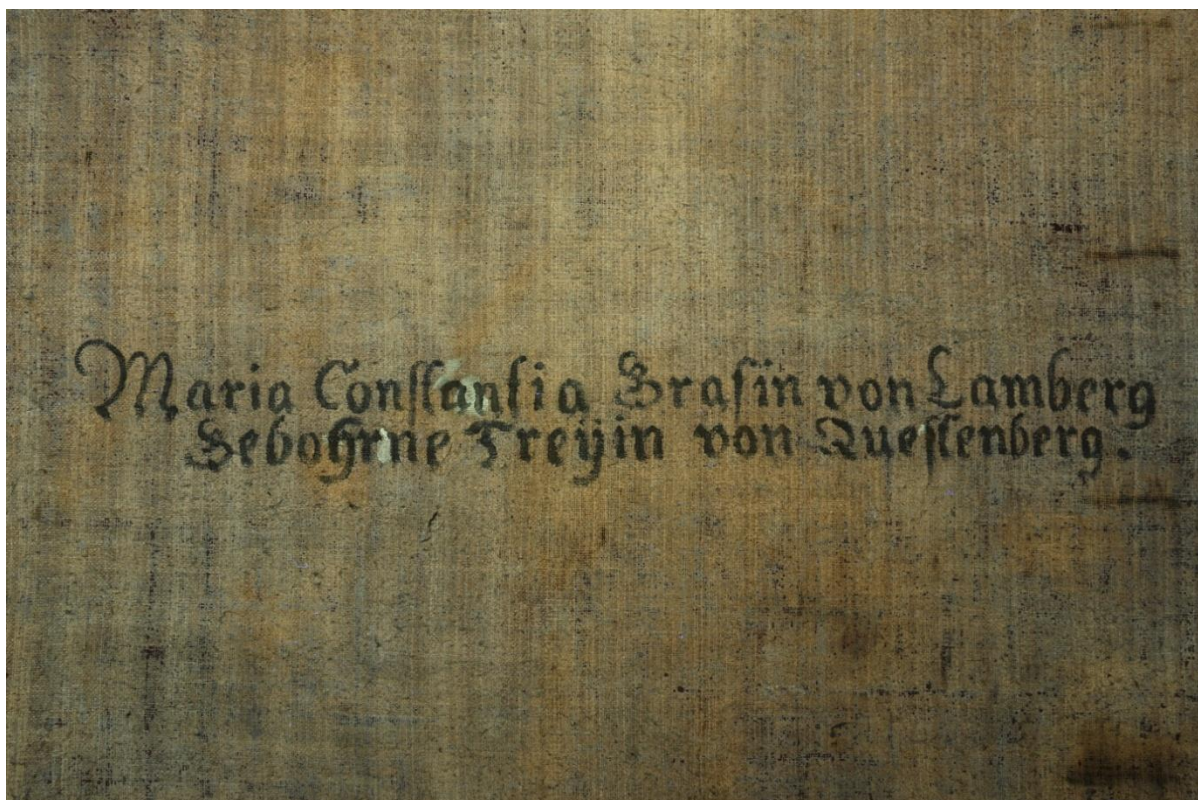 Maria Constantia Grafin von Lamberg
Gebohrne Freÿin von Questenberg.